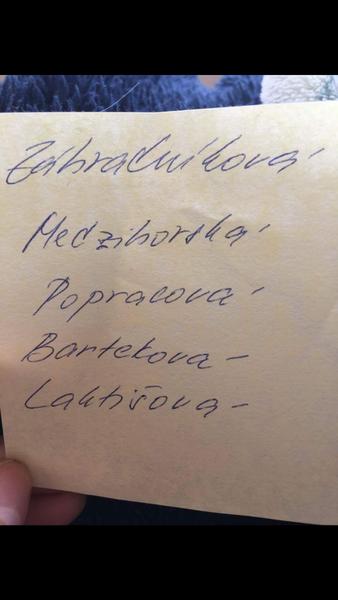 Záhradníková
Medzihorská
Popracová
Barteková
Laktišová